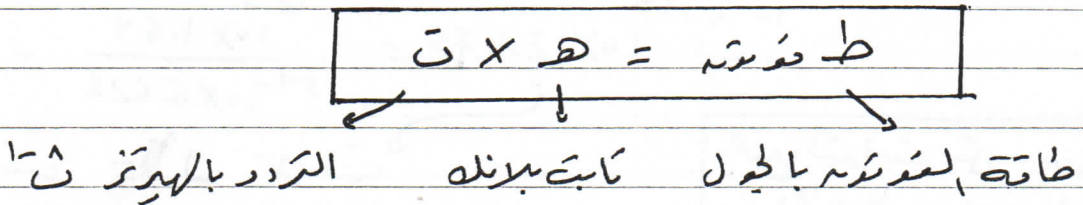 ط فوتون = هـ × ت
طاقة الفوتون بالجول ثابت بلانك التردد بالهيرتز ث⁻¹